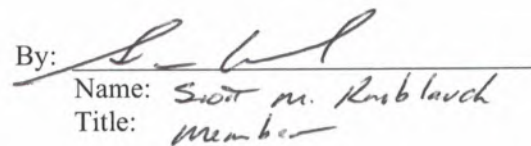 By:
Name: Scott M. Knoblauch
Title: Member